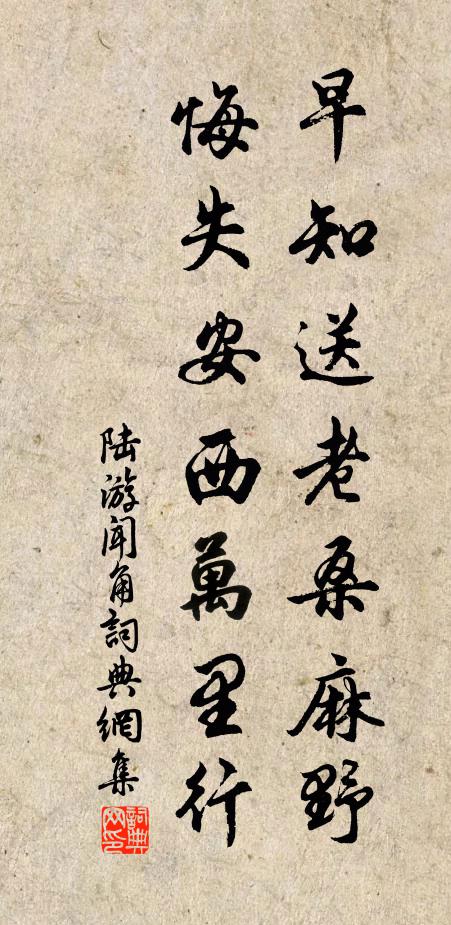 早知送老桑麻野
悔失安西萬里行
陆游闻角詞典網集
詞典網印